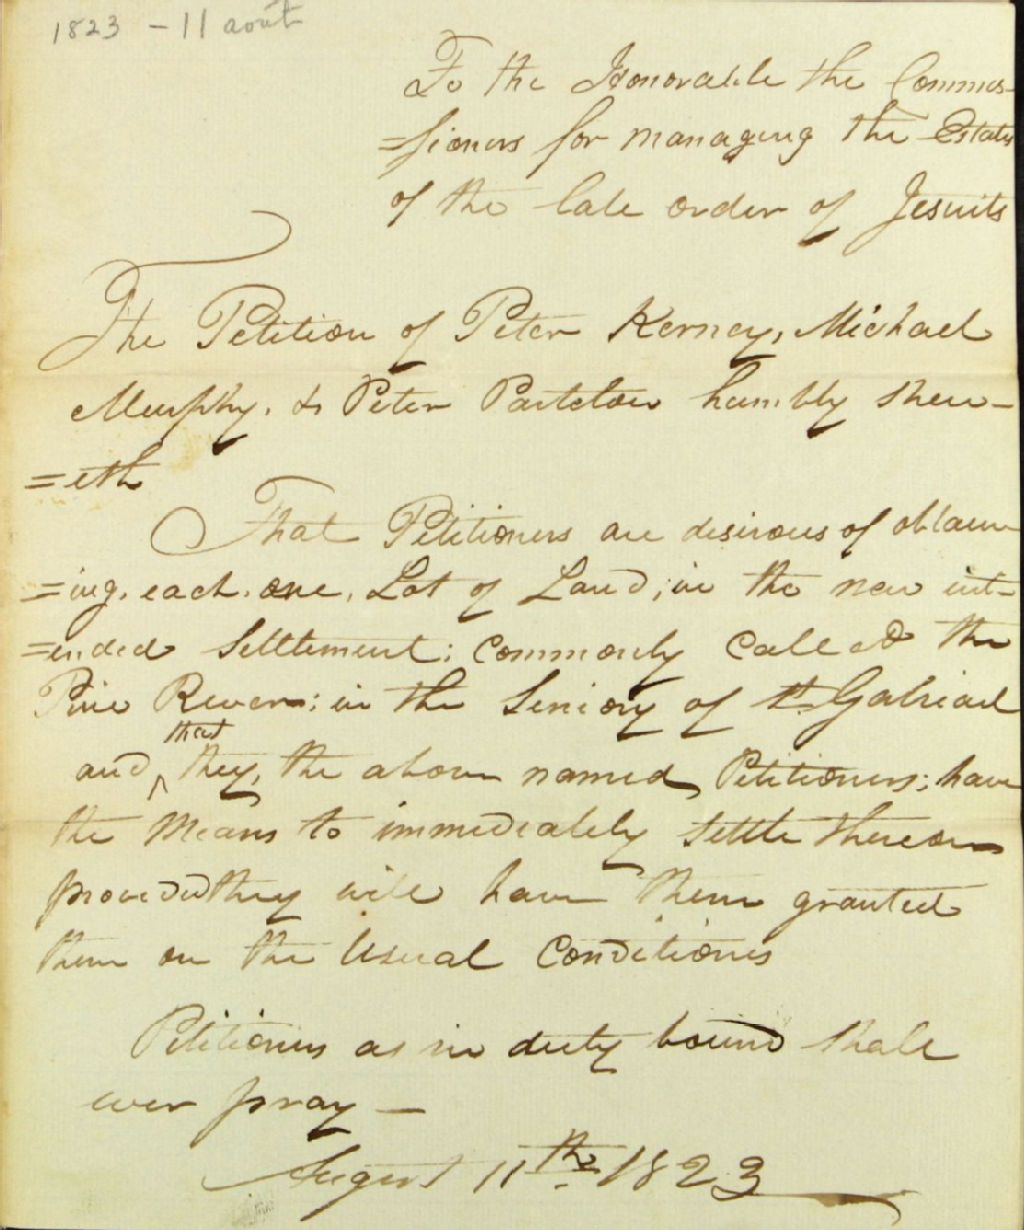 1823 - 11 août
To the Honorable the Commis-
=sioners for managing the Estates
of the late order of Jesuits
The Petition of Peter Kerney, Michael
Murphy, & Peter Partelow humbly shew-
=eth
That Petitioners are desirous of obtain
=ing, each, one, Lot of Land; in the new int-
=ended Settlement; Commonly Called the
Pine River: in the Seniory of St Gabriael
that
and ^ they, the above named Petitioners; have
the Means to immediately settle thereon
provided they will have them granted
them on the Usual Conditions
Petitioners as in duty bound shall
ever pray —
August 11th 1823